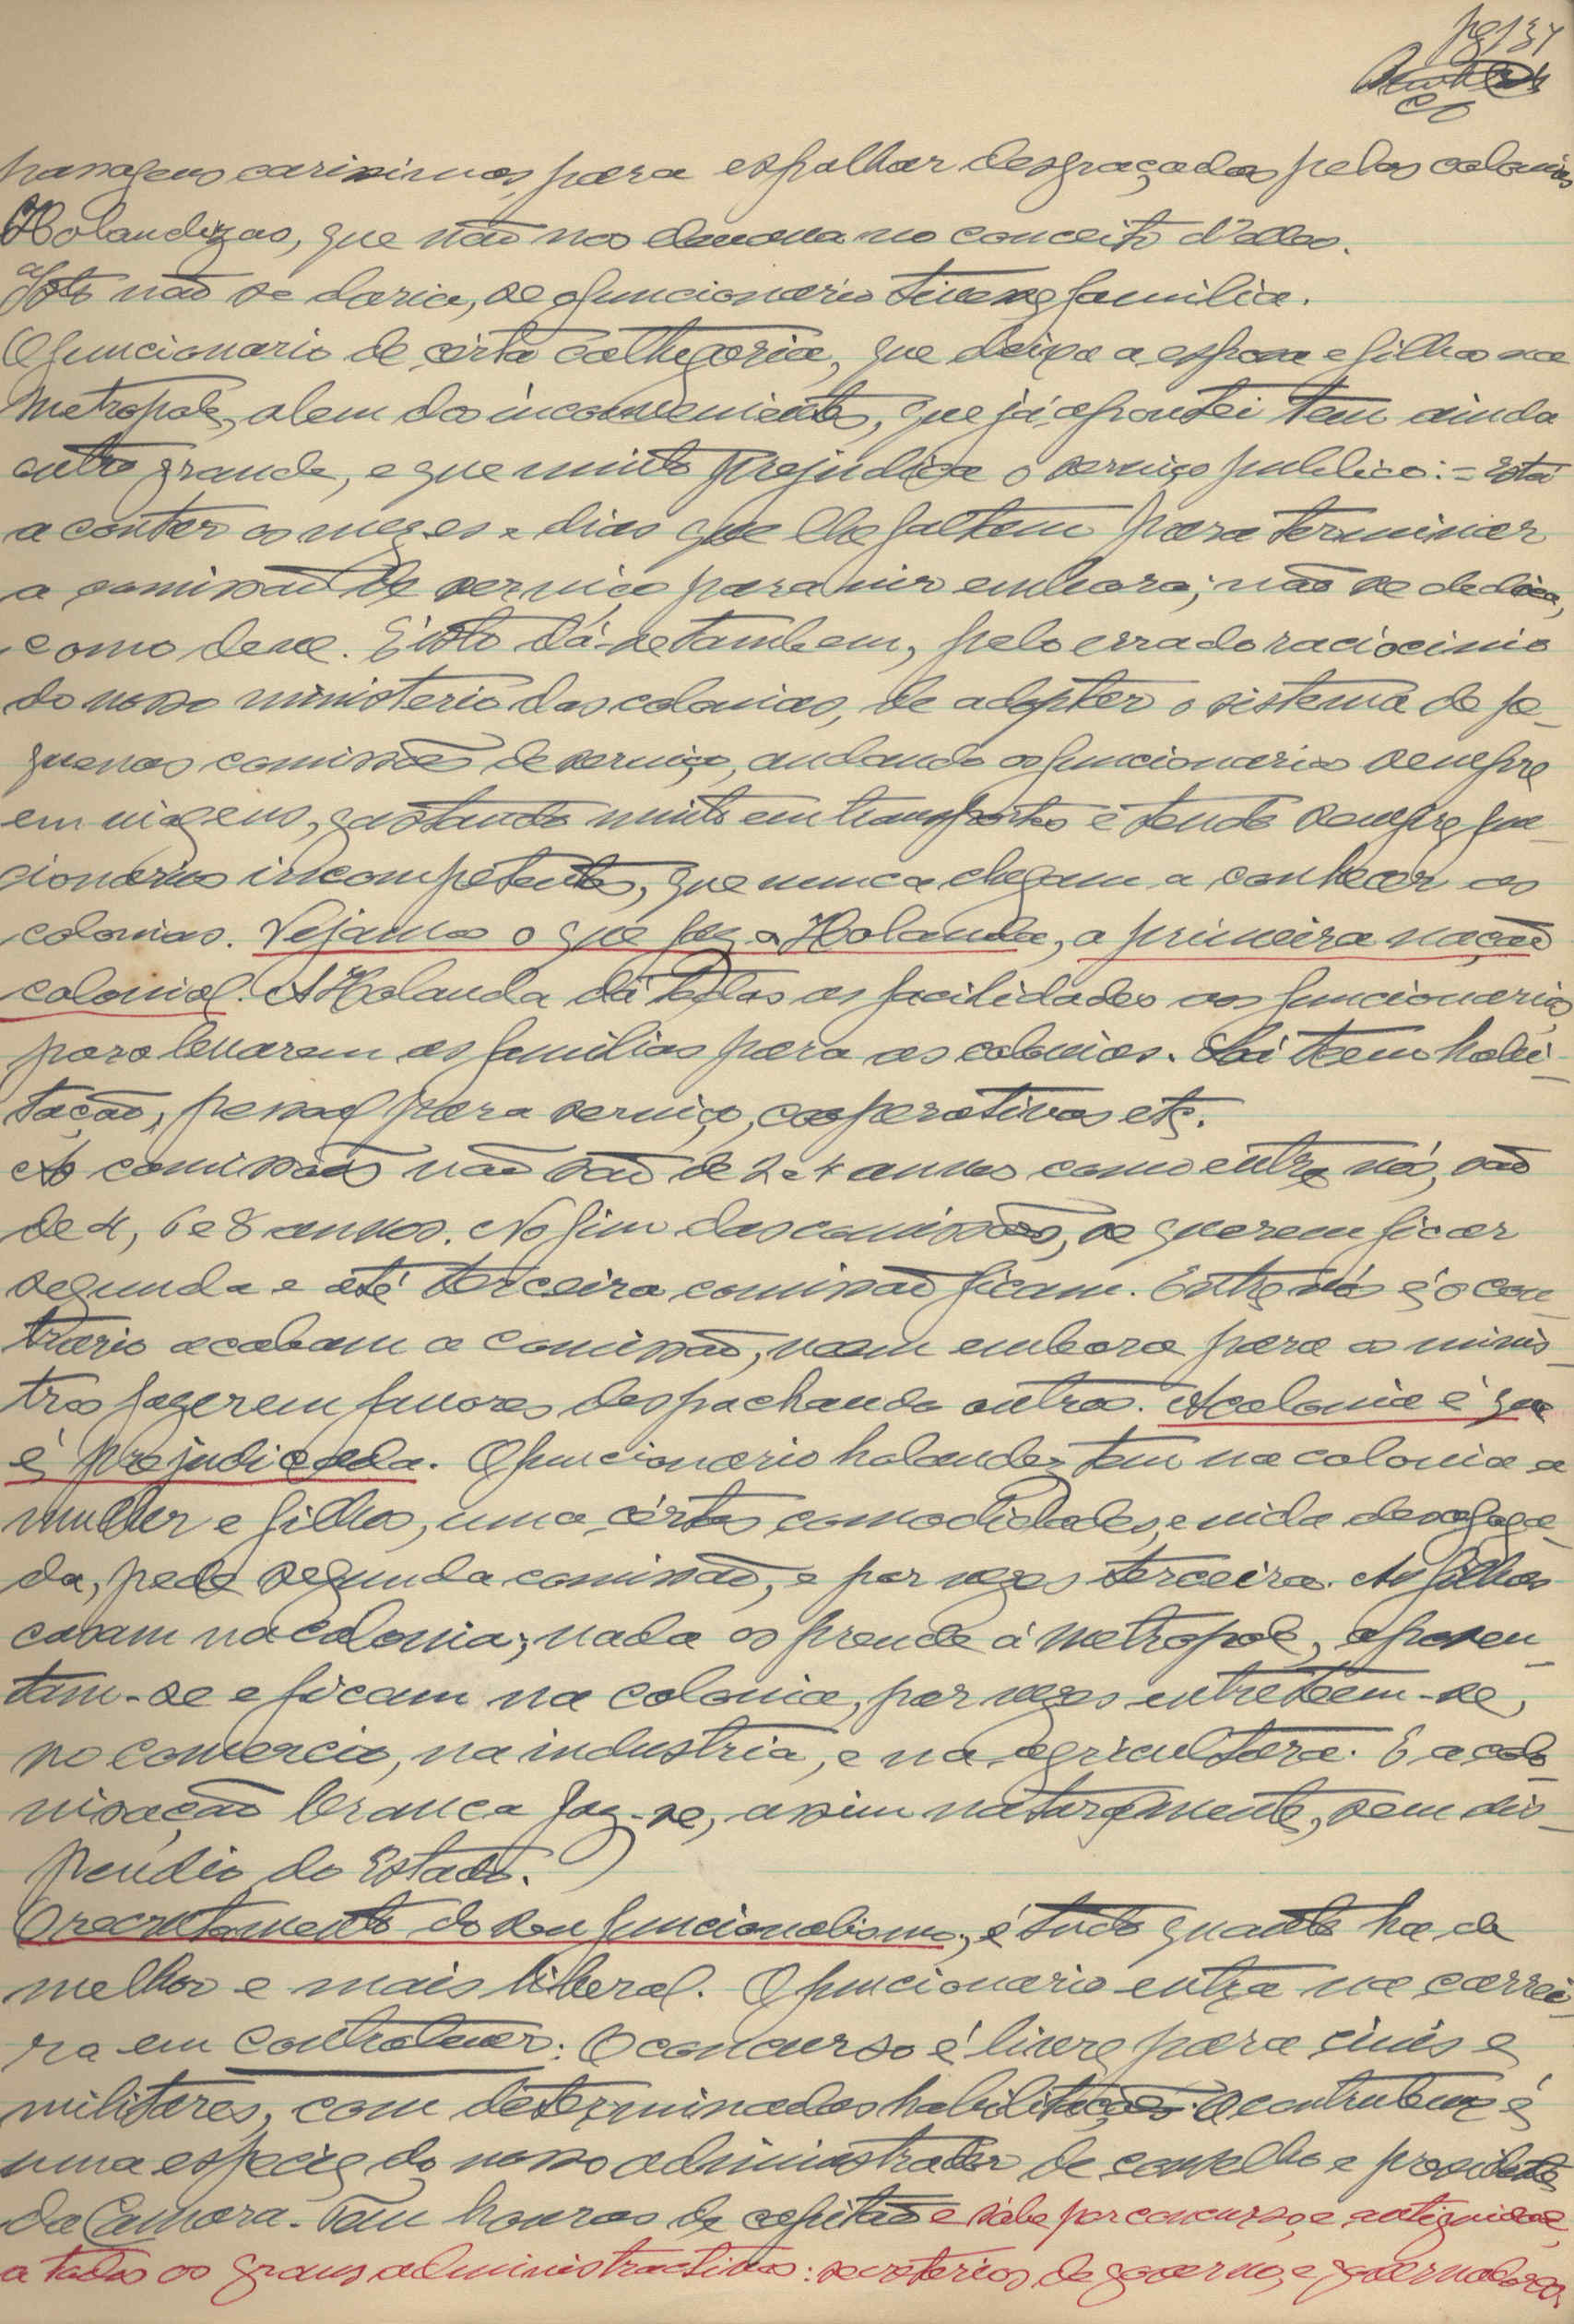 passagens carissimas, para espalhar desgraçados pelas colonias
Holandezas, que não nos eleva no conceito d'elles.
Isto não se daria, se o funcionario tivesse familia.
O funcionario de cérta cathegoria, que deixa a esposa e filhos na
Metropole, alem do inconveniente, que já apontei tem ainda
outro grande, e que muito prejudica o serviço publico: = está
a contar os mezes e dias que lhe faltem para terminar
a comissão de serviço para vir embora; não se dedica,
como deve. E isto dá-se tambem, pelo errado raciocinio
do nosso ministerio das colonias, de adopter o sistema de pe-
quenas comissões de serviço, andando os funcionarios sempre
em viagens, gastando muito em transportes e tendo sempre fun-
cionarios incompetentes, que nunca chegam a conhecer as
colonias. Vejamos o que faz a Holanda, a primeira nação
colonial. A Holanda dá todas as facilidades aos funcionarios
para levarem as familias para as colonias. Lá teem habi-
tação, pessoal para serviço, cooperativas etc.
As comissões não são de 2 e 4 annos como entre nós, são
de 4, 6 e 8 annos. No fim das comissões, se querem ficar
segunda e até terceira comissão ficam. Entre nós é o con-
trario acabam a comissão, veem embora para os minis-
tros fazerem favores despachando outros. A colonia é que
é prejudicada. O funcionario holandez tem na colonia a
mulher e filhos, uma cértas comodidades, e vida desafoga-
da, pede segunda comissão, e por vezes terceira. As filhas
casam na colonia; nada os prende á metropole, aposen-
tam-se e ficam na colonia, por vezes entreteem-se,
no comercio, na industria, e na agricultura. E a colo-
nisação branca faz-se, assim naturalmente, sem dis-
pendio do Estado.
O recrutamento do seu funcionalismo, é tudo quanto ha de
melhor e mais liberal. O funcionario entra na carrei-
ra em controleur: O concurso é livre para civis e
militares, com determinadas habilitações. O contruleur é
uma especie do nosso administrador de conselho e presidente
da Camara. Tem honras de capitão e sóbe por concurso, e antiguidade,
a todos os graus administractivos: secretarios de governo, e governadores